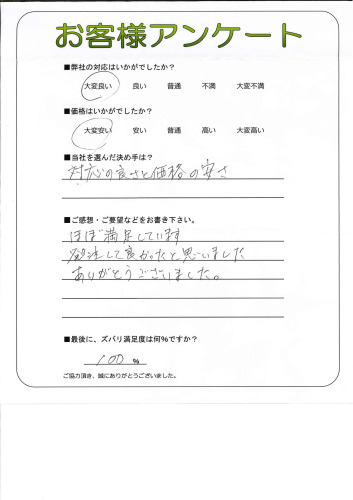 お客様アンケート
■弊社の対応はいかがでしたか？
大変良い 良い 普通 不満 大変不満
■価格はいかがでしたか？
大変安い 安い 普通 高い 大変高い
■当社を選んだ決め手は？
対応の良さと価格の安さ
■ご感想・ご要望などをお書き下さい。
ほぼ満足しています
発注して良かったと思いました
ありがとうございました。
■最後に、ズバリ満足度は何％ですか？
100 ％
ご協力頂き、誠にありがとうございました。